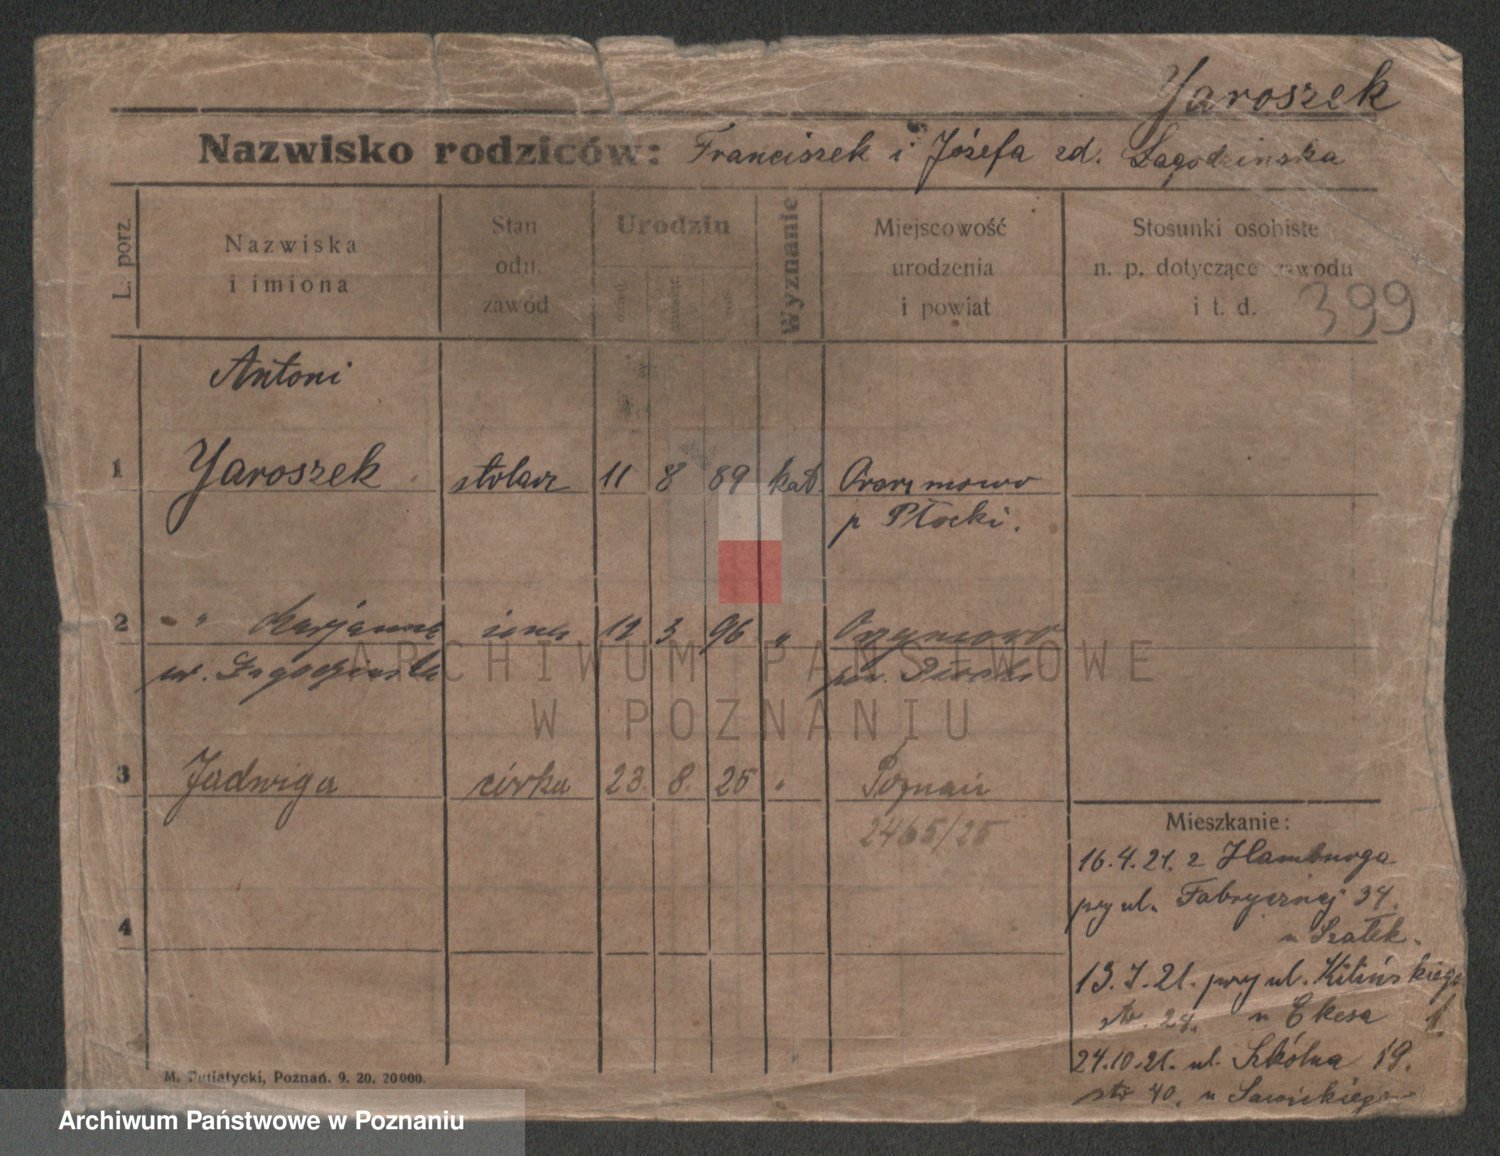 Yaroszek
Nazwisko rodziców: Franciszek i Józefa zd. Łagodzinska
L. porz.
Nazwiska
i imiona
Stan
odn.
zawód
Urodzin
Wyznanie
Miejscowość
urodzenia
i powiat
Stosunki osobiste
n. p. dotyczące zawodu
i t. d.
399
Antoni
1 Yaroszek stolarz 11 8 89 kat.
p Płocki.
2 " Marjanna żona 12 3 96 "
3 Jadwiga córka 23. 8. 25 " Poznań
2465/25
4
Mieszkanie:
16.4.21. z Hamburga
przy ul. Fabrycznej 34.
u Szałek.
13.7.21. przy ul. Kilińskiego 1.
str. 24. u Ekesa
24.10.21. ul. Szkólna 19.
str 40. u Sawickiego
M. Putiatycki, Poznań. 9. 20. 20000.
ARCHIWUM PAŃSTWOWE
W POZNANIU
Archiwum Państwowe w Poznaniu